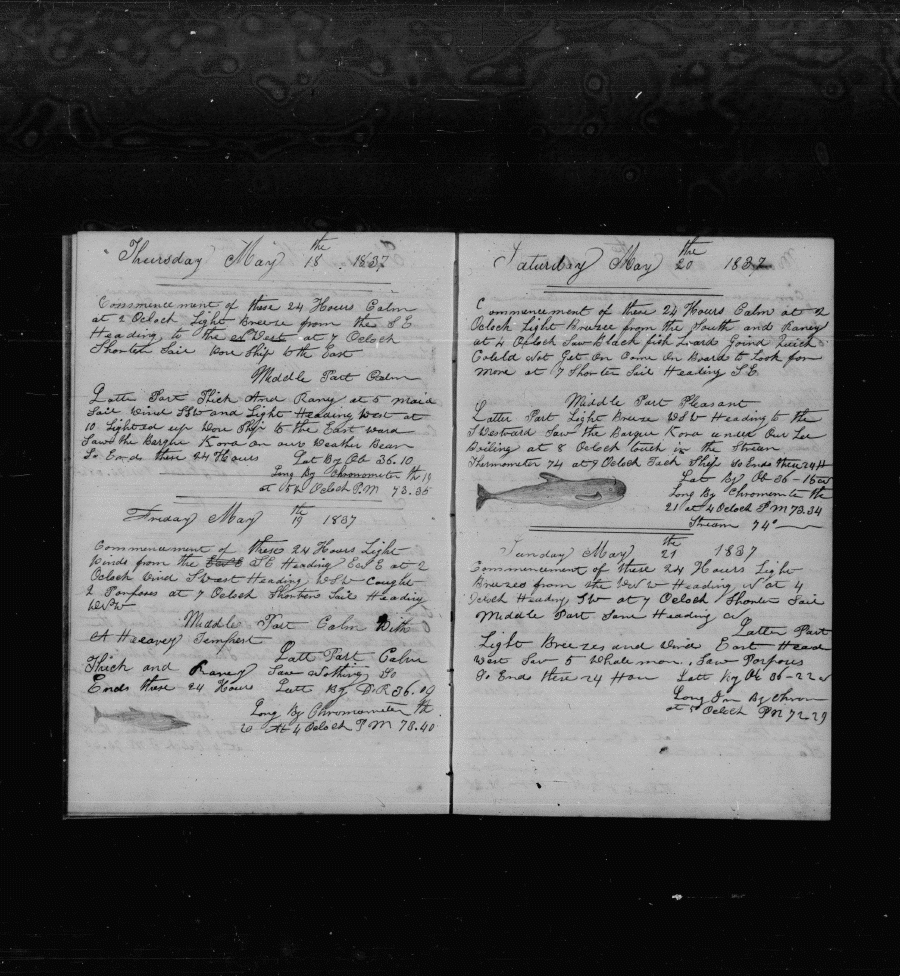 Thursday May 18 the 1837
Commencement of these 24 Hours Calm
at 2 Ocloch Light Breeze from the S E
Heading to the West at 7 Ocloch
Shorten Sail Wore Ship to the East
Middle Part Calm
Latter Part Thick And Raney at 5 Maid
Sail Wind SSW and Light Heading West at
10 Lighted up Wore Ship to the East ward
Saw the Barque Kora on our Weather Beam
So Ends these 24 Hours Lat By Ob 36.10
Long By Chronometer th 19
at Ocloch P.M 73.35
Friday May 19 the 1837
Commencement of these 24 Hours Light
Winds from the S E Heading E S E at 2
Ocloch Wind S West Heading WSW Caught
2 Porposes at 7 Ocloch Shorten Sail Heading
WSW
Middle Part Calm With
A Heavey Tempest
Latt Part Calm
Thick and Raney Saw Nothing So
Ends these 24 Hours Latt By D.R 36.19
Long By Chromometer th
20 At 4 Ocloch P M 73.40
Saturday May 20 the 1837
Commencement of these 24 Hours Calm at 2
Ocloch Light Breeze from the South and Raney
at 4 Ocloch Saw Black fish Goind Quick
Coleld Not Get On Come On Board to Look for
More at 7 Shorten Sail Heading S E
Middle Part Pleasant
Latter Part Light Breeze WSW Heading to the
S Westward Saw the Barque Kora under Our Lee
Boiling at 8 Ocloch touch in the Stream
Thermometer 74 at 9 Ocloch Tack Ship So Ends these 24 H
Lat By Ob 36-15
Long By Chromemite the
21 at 4 Ocloch P M 73.34
Stream 74°
Sunday May 21 the 1837
Commencement of these 24 Hours Light
Breezes from the W Heading at 4
Ocloch Heading SW at 7 Ocloch Shorten Sail
Middle Part Same Heading
Latter Part
Light Breezes and Wind East Heading
West Saw 5 Whale men, Saw Porpoes
So Ends these 24 Hour Latt by Ob 36-22
Long In By Chron
at 5 Ocloch P M 72.29